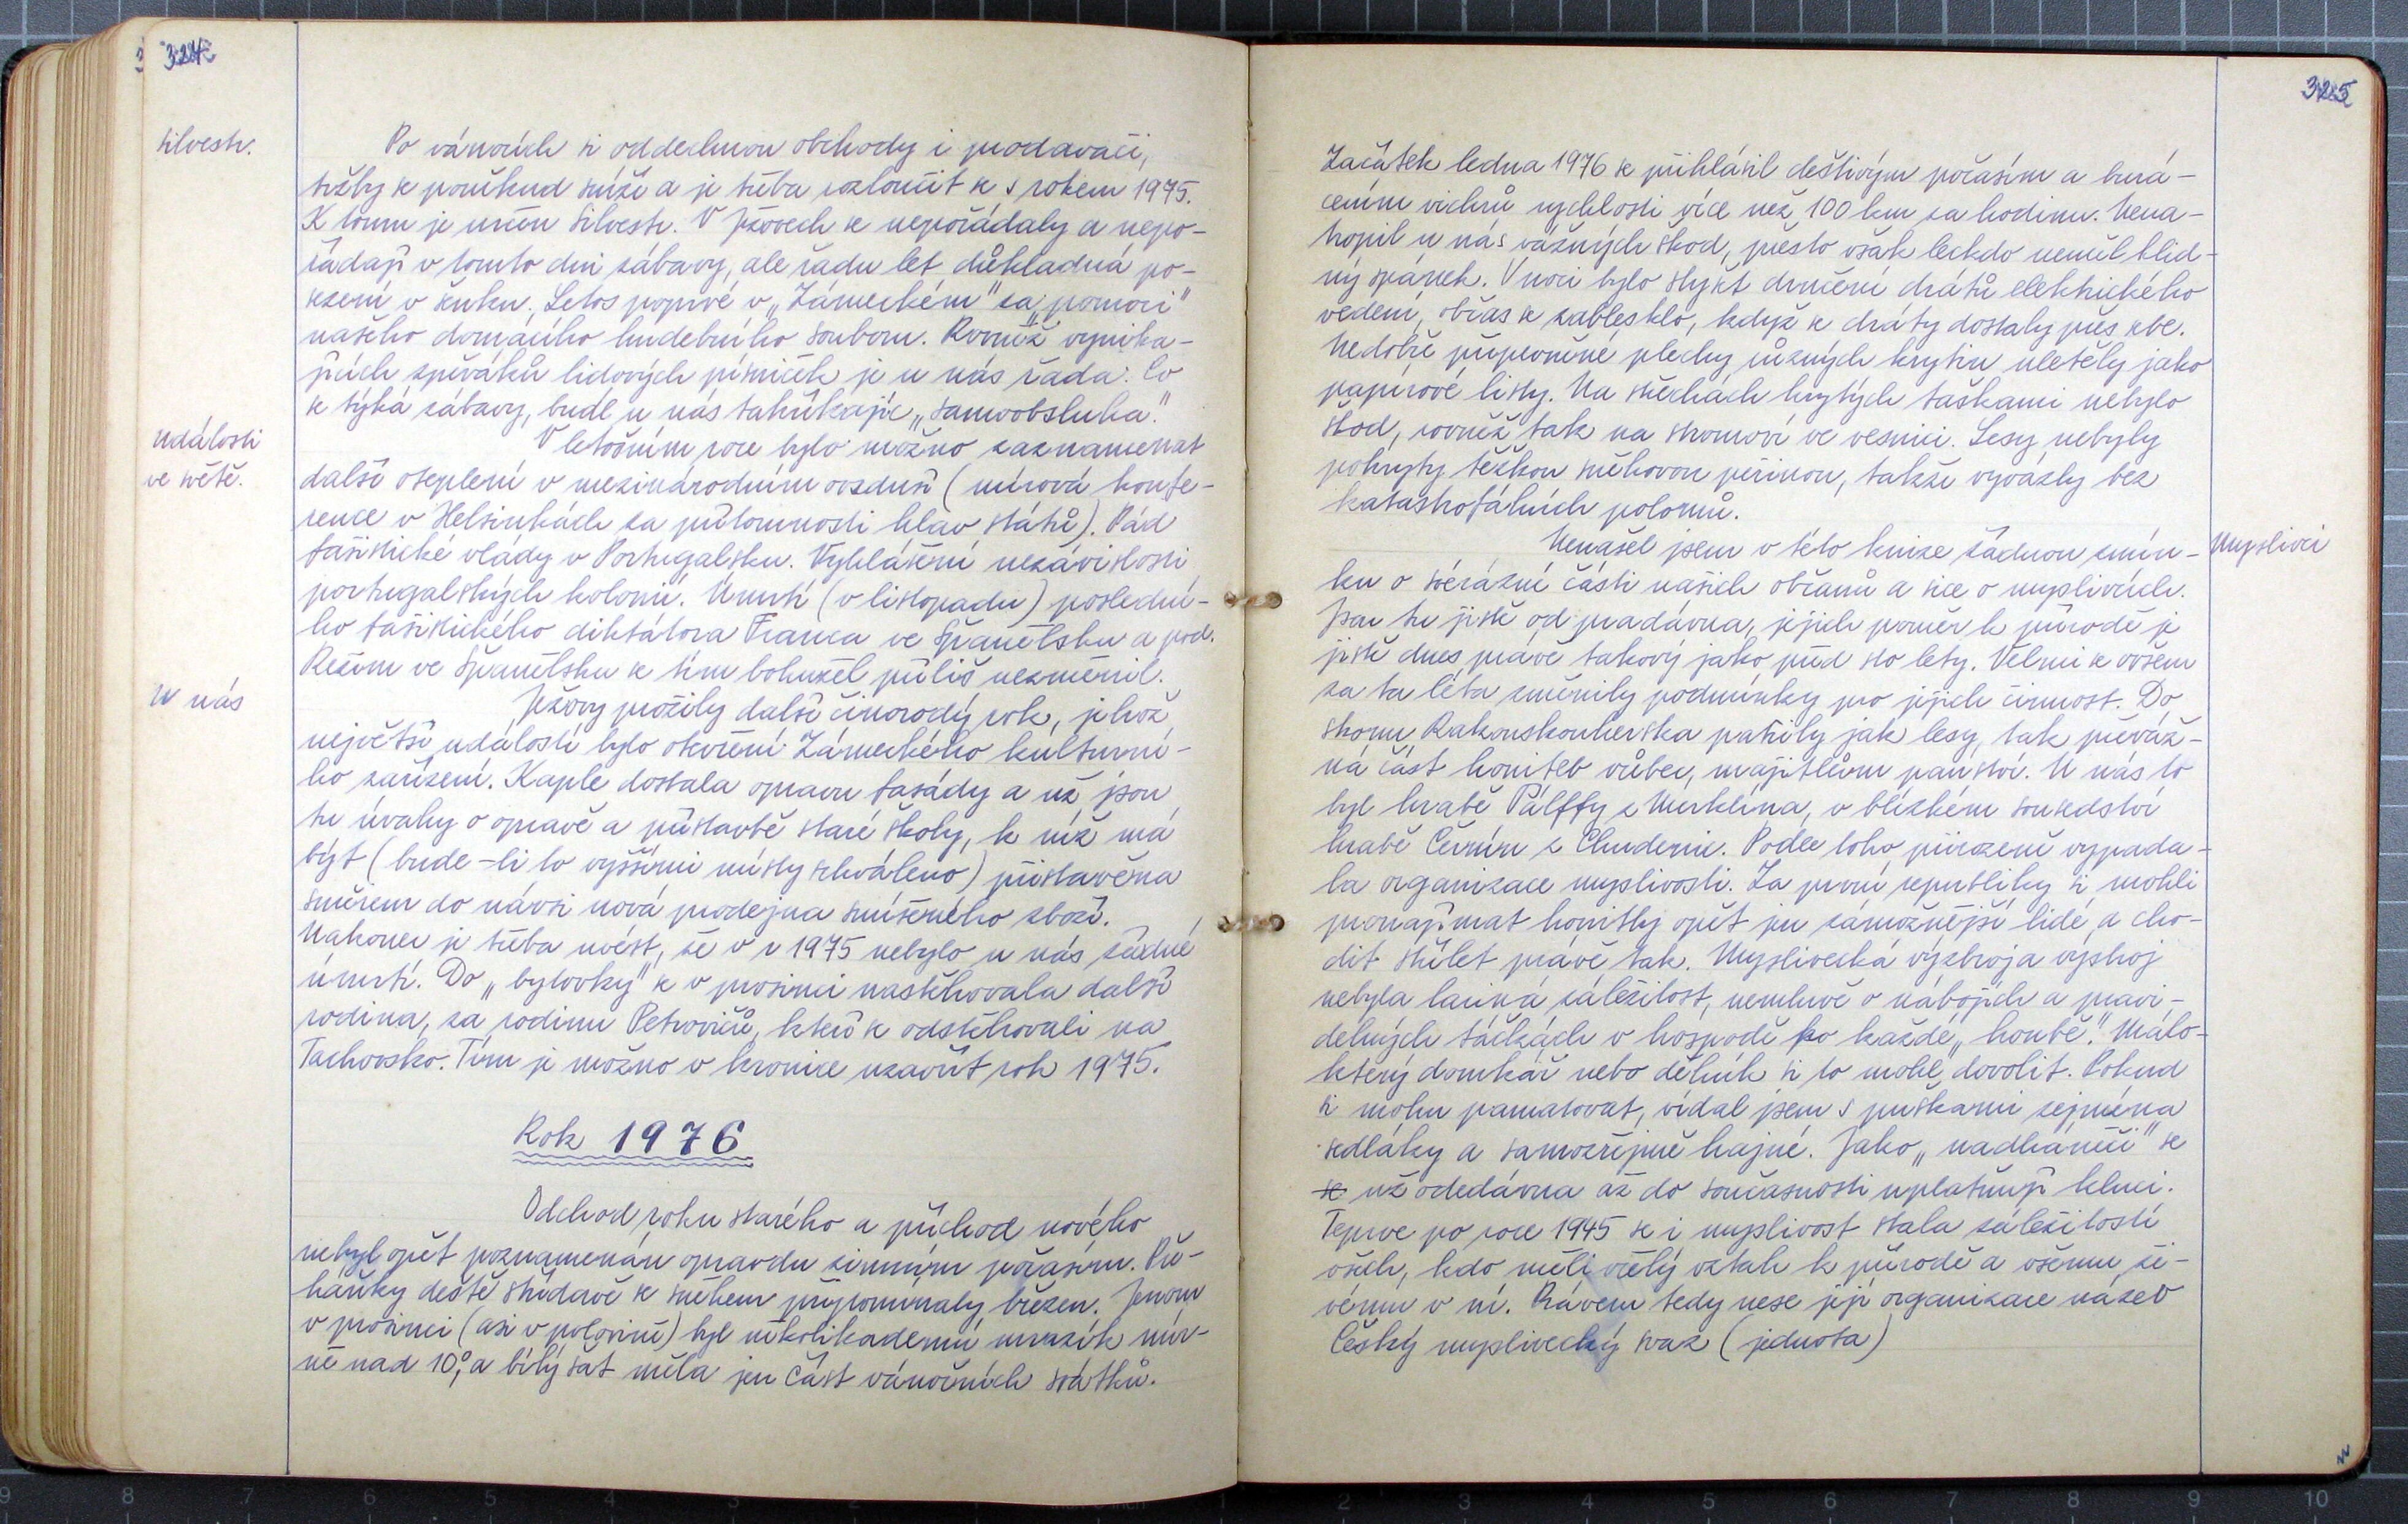 324
Silvestr.
Po vánocích si oddechnou obchody i prodavači,
tržby se poněkud sníží a je třeba rozloučit se s rokem 1975.
K tomu je určen Silvestr. V Ježovech se nepořádaly a nepo-
řádají v tomto dni zábavy, ale řadu let důkladná po-
sezení v šenku. Letos poprvé v „Zámeckém" za „pomoci"
našeho domácího hudebního souboru. Rovněž vynika-
jících zpěváků lidových písniček je u nás řada. Co
se týká zábavy, bude u nás takříkajíc „samoobsluha."
Události
ve světě.
V letošním roce bylo možno zaznamenat
další oteplení v mezinárodním ovzduší (mírová konfe-
rence v Helsinkách za přítomnosti hlav států). Pád
fašistické vlády v Portugalsku. Vyhlášení nezávislosti
portugalských kolonií. Úmrtí (v listopadu) poslední-
ho fašistického diktátora Franca ve Španělsku a pod.
Režim ve Španělsku se tím bohužel příliš nezměnil.
U nás
Ježovy prožily další činorodý rok, jehož
největší událostí bylo otevření Zámeckého kulturní-
ho zařízení. Kaple dostala opravu fasády a už jsou
tu úvahy o opravě a přístavbě staré školy, k níž má
být (bude-li to vyššími místy schváleno) přistavěna
směrem do návsi nová prodejna smíšeného zboží.
Nakonec je třeba uvést, že v r 1975 nebylo u nás žádné
úmrtí. Do „bytovky" se v prosinci nastěhovala další
rodina, za rodinu Petrovičů, kteří se odstěhovali na
Tachovsko. Tím je možno v kronice uzavřít rok 1975.
Rok 1976
Odchod roku starého a příchod nového
nebyl opět poznamenán opravdu zimním počasím. Pře-
háňky deště střídavě se sněhem připomínaly březen. Jenom
v prosinci (asi v polovině) byl několikadenní mrazík mír-
ně nad 10°, a bílý šat měla jen část vánočních svátků.
325
Začátek ledna 1976 se přihlásil deštivým počasím a burá-
cením vichrů rychlosti více než 100 km za hodinu. Nena-
tropil u nás vážných škod, přesto však leckdo neměl klid-
ný spánek. V noci bylo slyšet drnčení drátů elektrického
vedení, občas se zablesklo, když se dráty dostaly přes sebe.
Nedobře připevněné plechy různých krytin uletěly jako
papírové listy. Na střechách krytých taškami nebylo
škod, rovněž tak na stromoví ve vesnici. Lesy nebyly
pokryty těžkou sněhovou peřinou, takže vyvázly bez
katastrofálních polomů.
Myslivci
Nenašel jsem v této knize žádnou zmín-
ku o svérázné části našich občanů a sice o myslivcích.
Jsou tu jistě od pradávna, jejich poměr k přírodě je
jistě dnes právě takový jako před sto lety. Velmi se ovšem
za ta léta změnily podmínky pro jejich činnost. Do
shonu Rakouskouherska patřily jak lesy, tak převáž-
ná část honiteb vůbec, majitelům panství. U nás to
byl hrabě Pálffy z Merklína, v blízkém sousedství
hrabě Černín z Chudenic. Podle toho přirozeně vypada-
la organizace myslivosti. Za první republiky si mohli
pronajímat honitby opět jen zámožnější lidé, a cho-
dit střílet právě tak. Myslivecká výzbroj a výstroj
nebyla laciná záležitost, nemluvě o nábojích a pravi-
delných táčkách v hospodě po každé „honbě." Málo-
který domkář nebo dělník si to mohl dovolit. Pokud
si mohu pamatovat, vídal jsem s puškami zejména
sedláky a samozřejmě hajné. Jako „nadháněči" se
se už odedávna až do současnosti uplatňují kluci.
Teprve po roce 1945 se i myslivost stala záležitostí
všech, kdo měli vřelý vztah k přírodě a všemu ži-
vému v ní. Právem tedy nese její organizace název
Český myslivecký svaz (jednota)